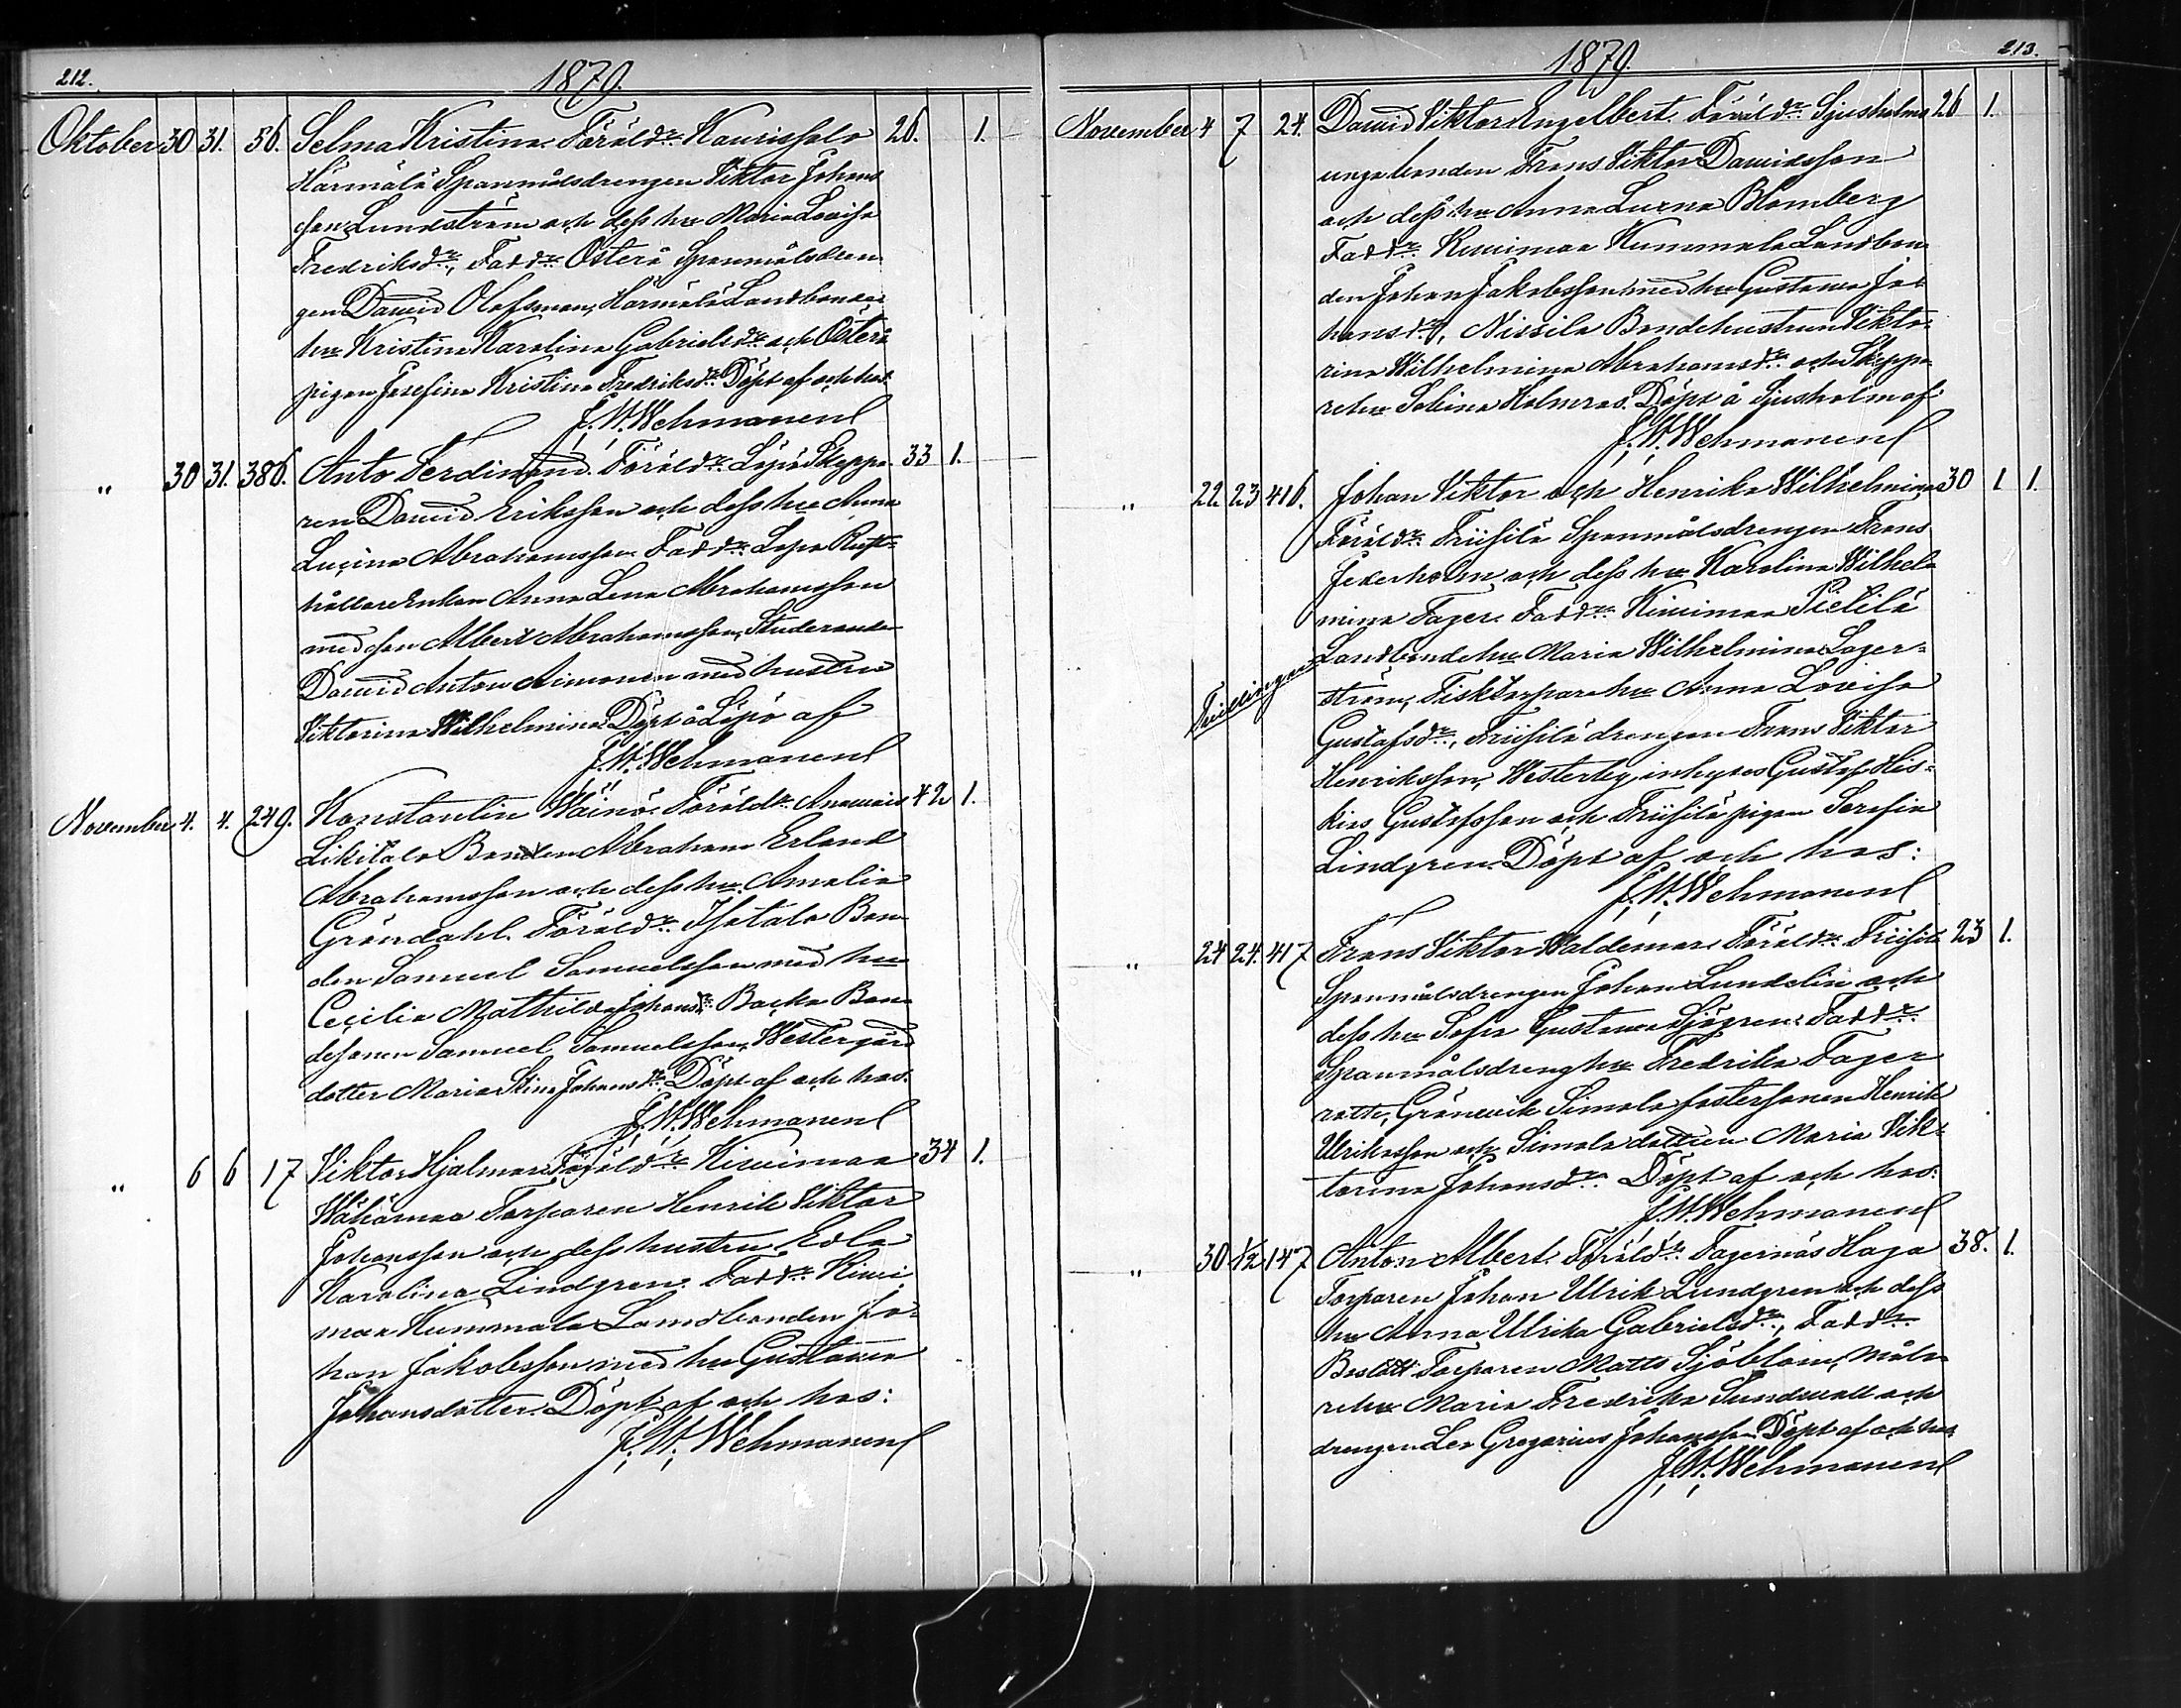 212.
1879.
Oktober 30 31. 56. Selma Kristina. Föräldr. Kaurissalo 26. 1.
Härmälä Spanmålsdrengen Viktor Johans
son Lundström och dess hu Maria Lovisa
Fredriksdr., Faddr. Österå Spanmålsdren
gen David Olofsman, Härmälä Landbonde
hu Kristina Karolina Gabrielsdr och Österå
pigan Josefina Kristina Fredriksdr. Döpt af och hos
J. W. Wehmanen
" 30 31. 386. Anto Ferdinand. Föräldr. Lypö Skeppa 33 1.
ren David Eriksson och dess hu Anna
Lucina Abrahamsson Faddr. Lypö Rust=
hållare Enkan Anna Lena Abrahamsson
med son Albert Abrahamsson, Studeranden
David Anton Aimonen med hustru
Viktorina Wilhelmina Döpt å Lypö af
J. W. Wehmanen
November 4. 4. 249. Konstantin Wäinö. Föräldr. Anawais 42 1.
Likitalo Bonden Abraham Erland
Abrahamsson och dess hu Amalia
Gröndahl. Föräldr. Isotalo Bon
den Samuel Samuelsson med hu
Cecilia Mathilda Johansdr. Backa Bon
desonen Samuel Samuelsson, Westergård
dotter Maria Stina Johansdr. Döpt af och hos.
J. W. Wehmanen
" 6 6 17 Viktor Hjalmar. Föräldr. Kiwimaa 34 1.
Torparen Henrik Viktor
Johansson och dess hustru Eola
Karolina Lindgren. Faddr. Kiwi
maa Kummala Landbonden Jo=
han Jakobsson med hu Gustawa
Johansdotter. Döpt af och hos:
J. W. Wehmanen
1879.
213.
November 4 7 24. David Viktor Engelbert. Föräldr. Sjusholma 26 1.
unga bonden Frans Viktor Davidsson
och dess hu Anna Lucna Blomberg
Faddr. Kiwimaa Kummala Landbon
den Johan Jakobsson med hu Gustawa Jo=
hansdr, Nissila Bondehustrun Vikto=
rina Wilhelmina Abrahamsdr och Skeppa
rehu Sabina Holmros. Döpt å Sjusholm af
J. W. Wehmanen
" 22 23 416. Johan Viktor och Henrika Wilhelmina 30 1 1.
Föräldr. Friisilä Spanmålsdrengen Frans
och dess hu Karolina Wilhel
mina Fager. Faddr. Kiwimaa Pietilä
Landbonde hu Maria Wilhelmina Lager=
ström, Fisktorpare hu Anna Lovisa
Tvillingar
Gustafsdr, Friisilä drengen Frans Viktor
Henriksson, Westerby inhyses Gustaf His=
kias Gustafsson och Friisilä pigan Serafia
Lindgren. Döpt af och hos:
J. W. Wehmanen
" 24 24. 417 Frans Viktor Waldemar. Föräldr. Friisilä 23 1.
Spanmålsdrengen Johan Lundelin och
dess hu Sofia Gustawa Sjögren. Faddr.
Spanmålsdreng hu Fredrika Fager
Simola fostersonen Henrik
Ulriksson och Simola dottren Maria Vik=
torina Johansdr. Döpt af och hos.
J. W. Wehmanen
" 30 1/12 147 Anton Albert. Föräldr. Fagernäs Haga 38. 1.
Torparen Johan Ulrik Lundgren och dess
hu Anna Ulrika Gabrielsdr, Faddr.
Torparen Matts Sjöblom, Måla
rehu Maria Fredrika Sundwall och
drengen Leo Gregorius Johansson Döpt af och hos
J. W. Wehmanen